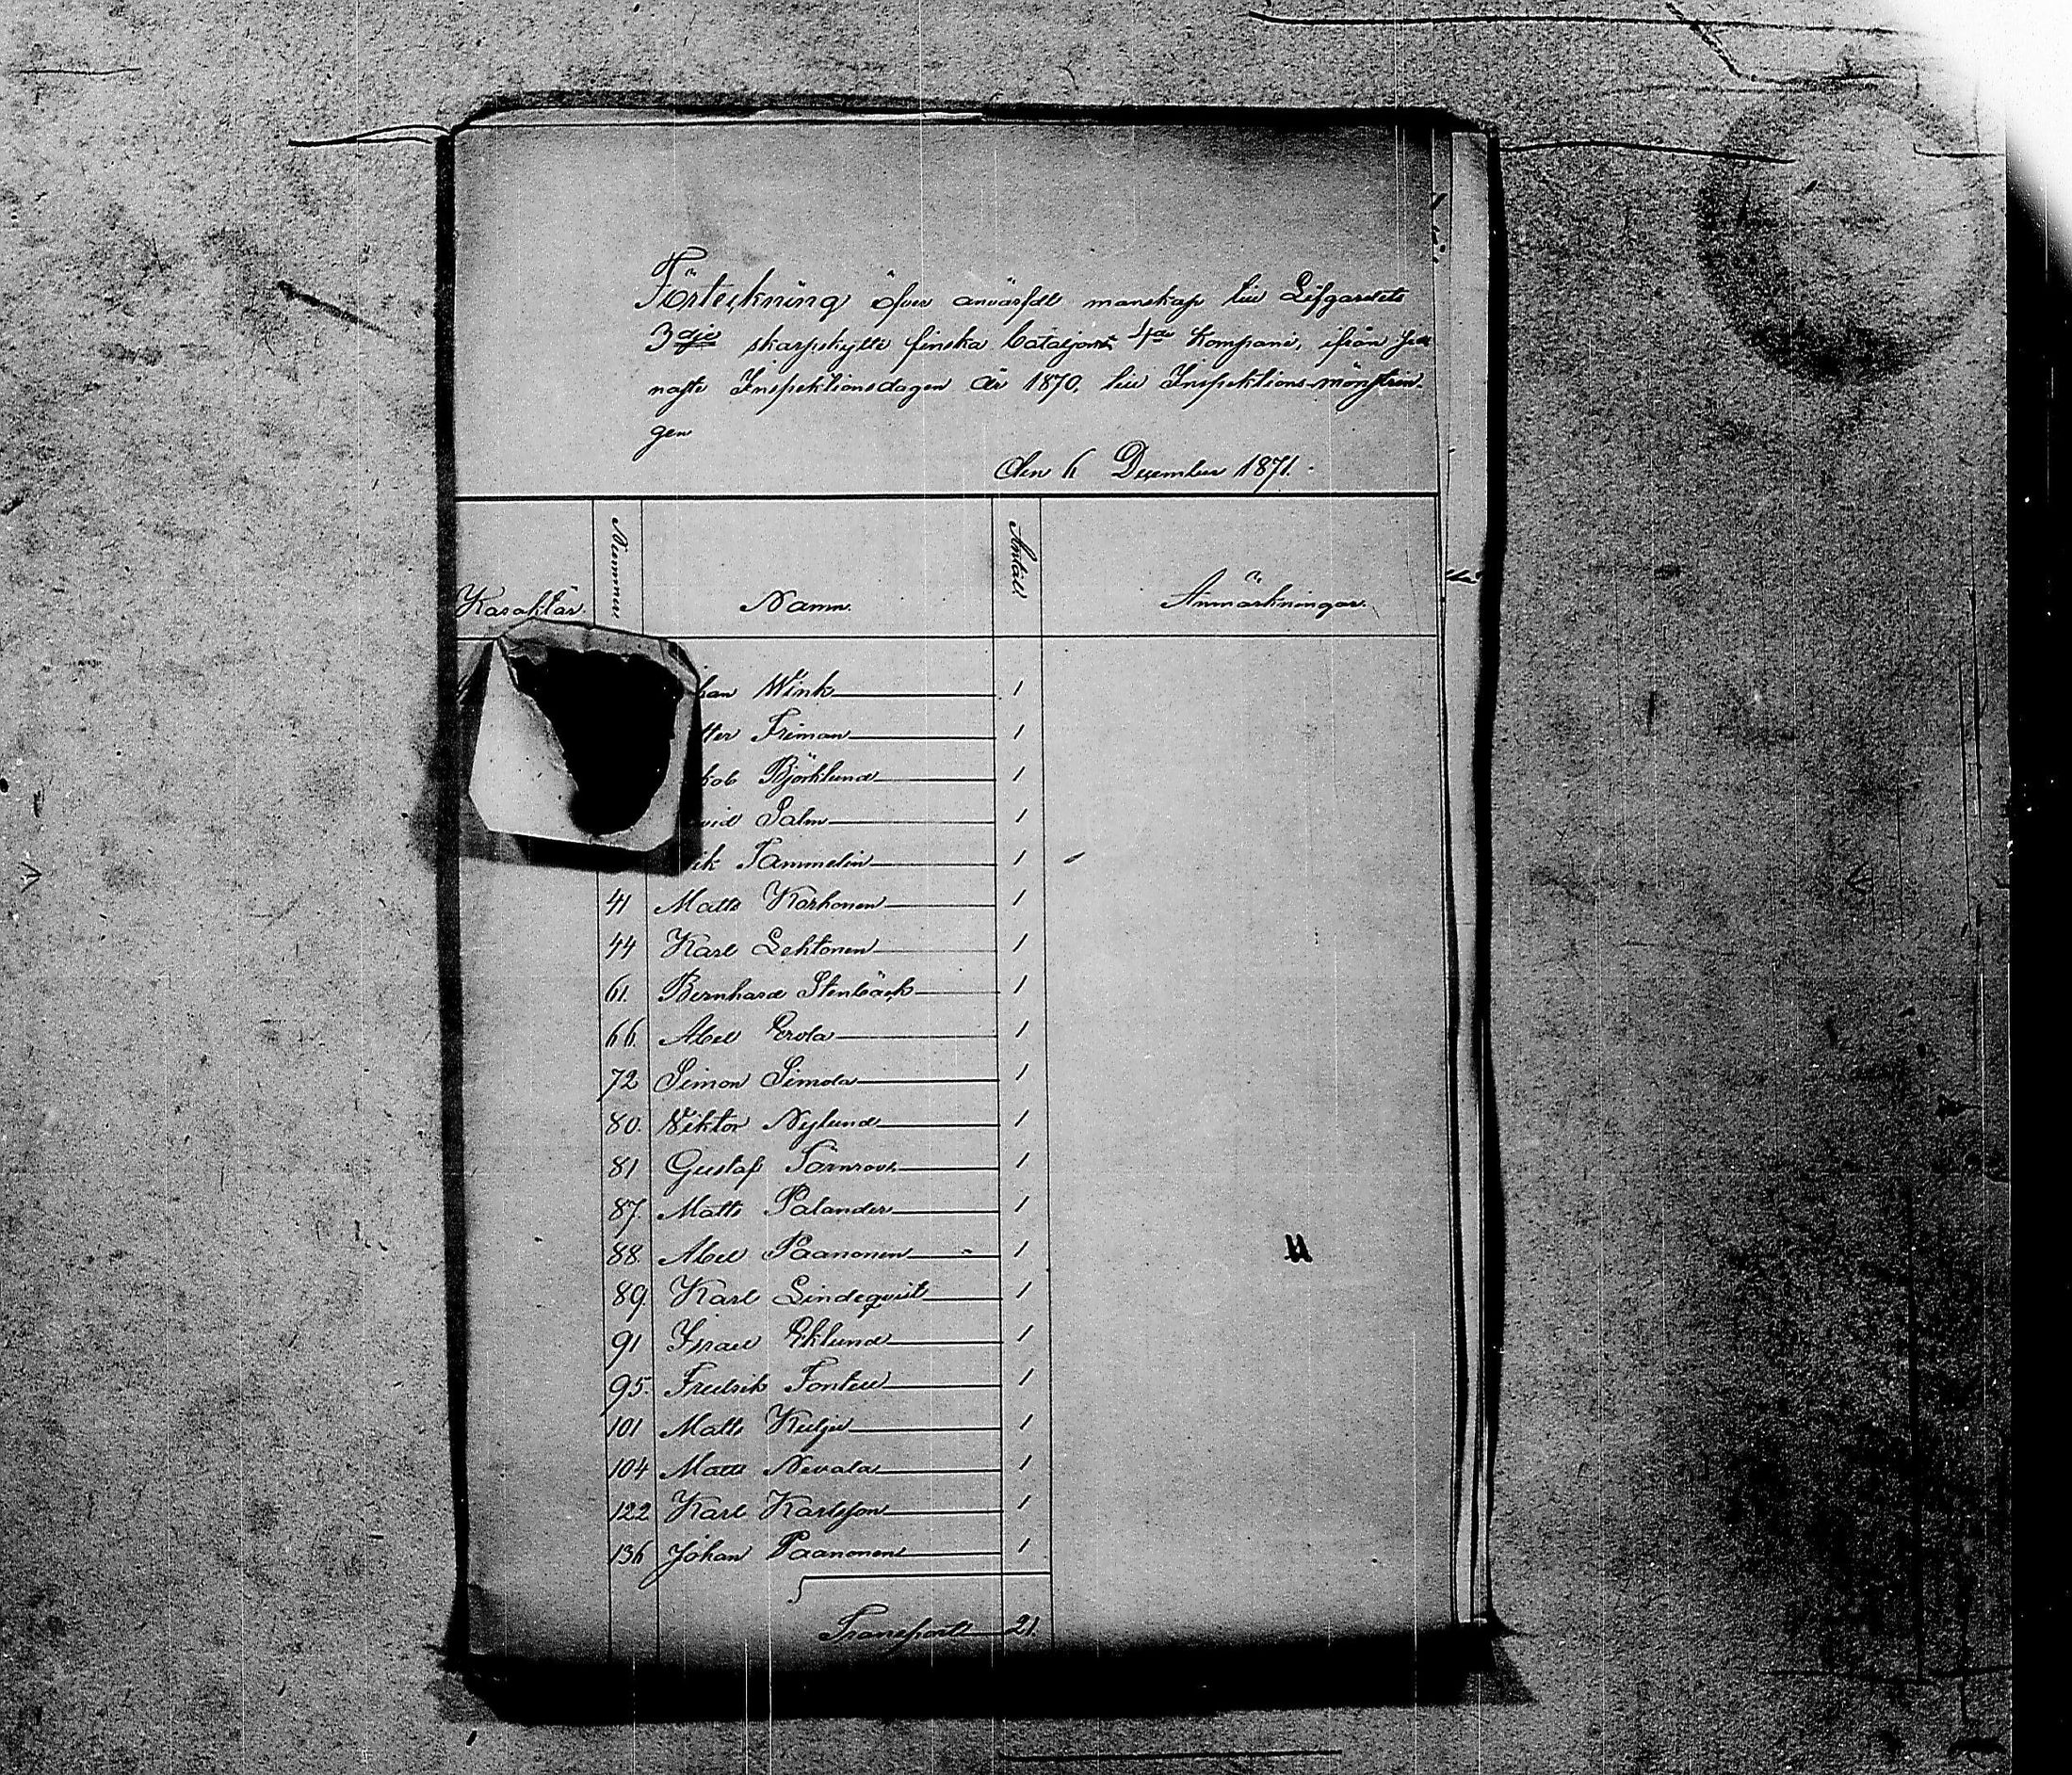 Förteckning öfver anvärfdt manskap till Lifgardets
3dje skarpskytte finska bataljons 4de Kompani, ifrån sed
naste Inspektionsdagen år 1870, till Inspektions-mönstrin-
gen
den 6 December 1871.
Karaktär. Nummer Namn. Antal Anmärkningar.
han Wink 1
tter Friman 1
kob Björklund 1
vid Salm 1
rik Tammelin 1
41 Matts Korhonen 1
44 Karl Lehtonen 1
61. Bernhard Stenbäck 1
66. Abel Erola 1
72 Simon Simola 1
80. Viktor Nylund 1
81 Gustaf Törnroos 1
87. Matts Palander 1
88. Abel Paanonen 1
89. Karl Lindeqvist 1
91 Israel Eklund 1
95. Fredrik Fontell 1
101 Matts 1
104 Matts Nevala 1
122 Karl Karlsson 1
136 Johan Paanonen 1
Transport 21.